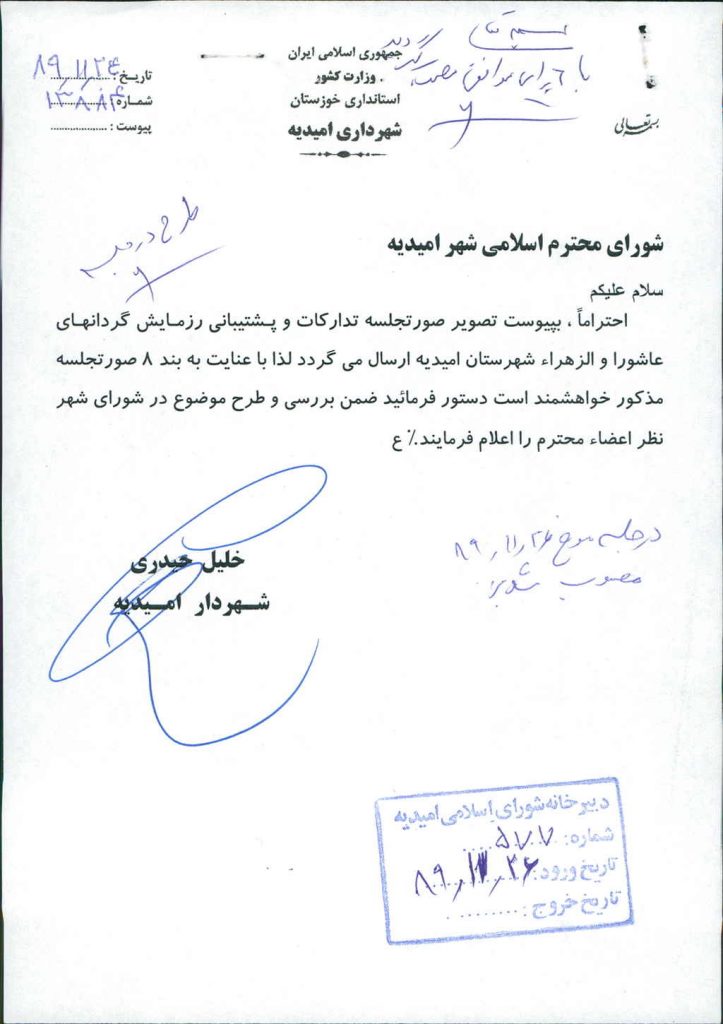 بسمه تعالی
جمهوری اسلامی ایران
وزارت کشور
استانداری خوزستان
شهرداری امیدیه
تاریخ: ۸۹/۱۱/۲۴
شماره: ۱۳۸۸۴
پیوست :
بسمه تعالی
با ۶ رای موافق مصوب گردید
طرح در جلسه
شورای محترم اسلامی شهر امیدیه
سلام علیکم
احتراماً ، بپیوست تصویر صورتجلسه تدارکات و پشتیبانی رزمایش گردانهای
عاشورا و الزهراء شهرستان امیدیه ارسال می گردد لذا با عنایت به بند ۸ صورتجلسه
مذکور خواهشمند است دستور فرمائید ضمن بررسی و طرح موضوع در شورای شهر
نظر اعضاء محترم را اعلام فرمایند.٪ ع
خلیل حیدری
شهردار امیدیه
در جلسه مورخ ۸۹/۱۱/۲۶
مصوب
دبیرخانه شورای اسلامی امیدیه
شماره: ۵۷۷
تاریخ ورود: ۸۹/۱۱/۲۶
تاریخ خروج: